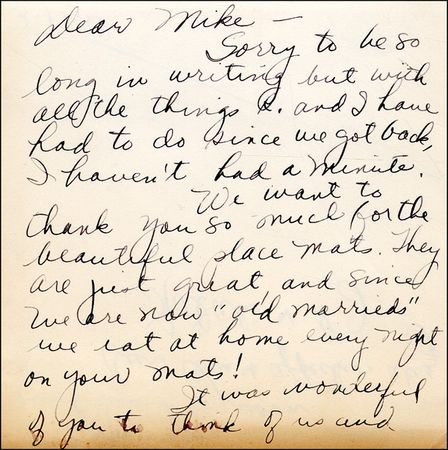 Dear Mike —
Sorry to be so
long in writing but with
all the things S. and I have
had to do since we got back,
I haven't had a minute.
We want to
thank you so much for the
beautiful place mats. They
are just great, and since
we are now "old marrieds"
we eat at home every night
on your mats!
It was wonderful
of you to think of us and